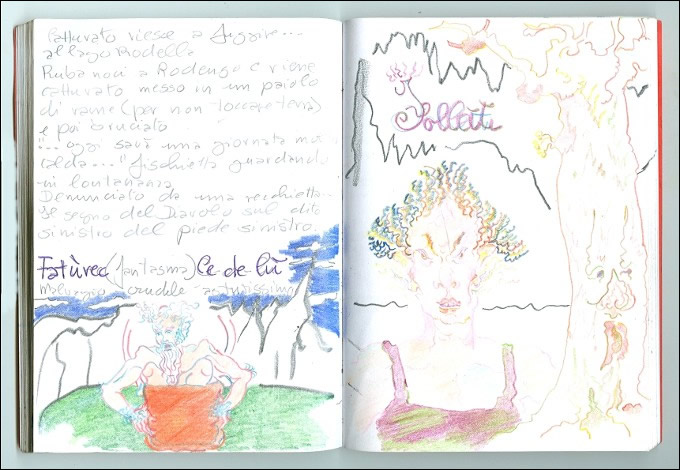 catturato riesce a fuggire...
al lago Rodella
Ruba noci a Rodengo e viene
catturato messo in un paiolo
di rame (per non toccare terra)
e poi bruciato
"... oggi sarà una giornata mol
calda..." fischietta guardando
in lontananza
Denunciato da una vecchietta
Se segno del Diavolo sul dito
sinistro del piede sinistro
Fatùrec (fantasma) Ce-de-lù
malvagio crudele astutissimo
Folletti